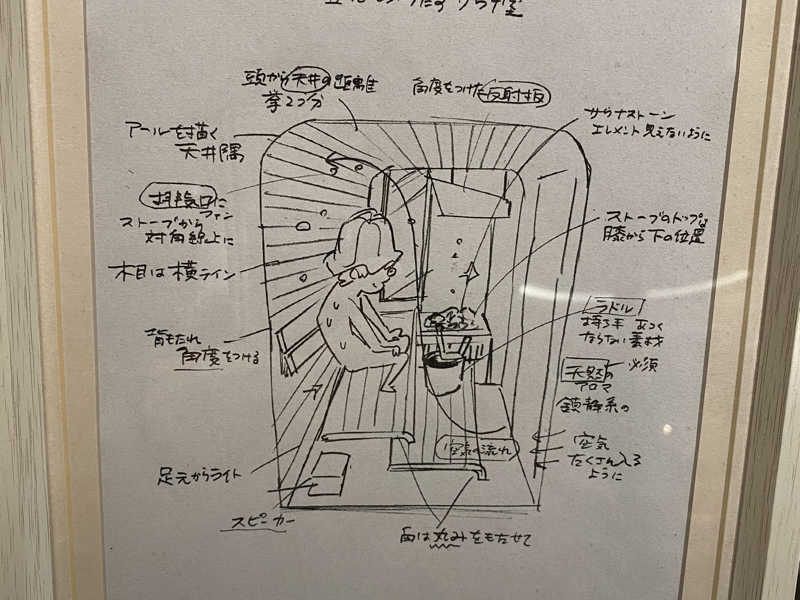 頭から天井の距離
拳2つ分
角度をつけた反射板
サウナストーン
エレメント見えないように
アールを描く
天井隅
排気口に
ファン
ストーブから
対角線上に
木目は横ライン
ストーブのトップは
膝から下の位置
背もたれ
角度をつける
ラドル
持ち手 あつく
ならない素材
天然の 必須
アロマ
鎮静系の
空気の流れ
空気
たくさん入る
ように
足元からライト
スピーカー
角は丸みをもたせて